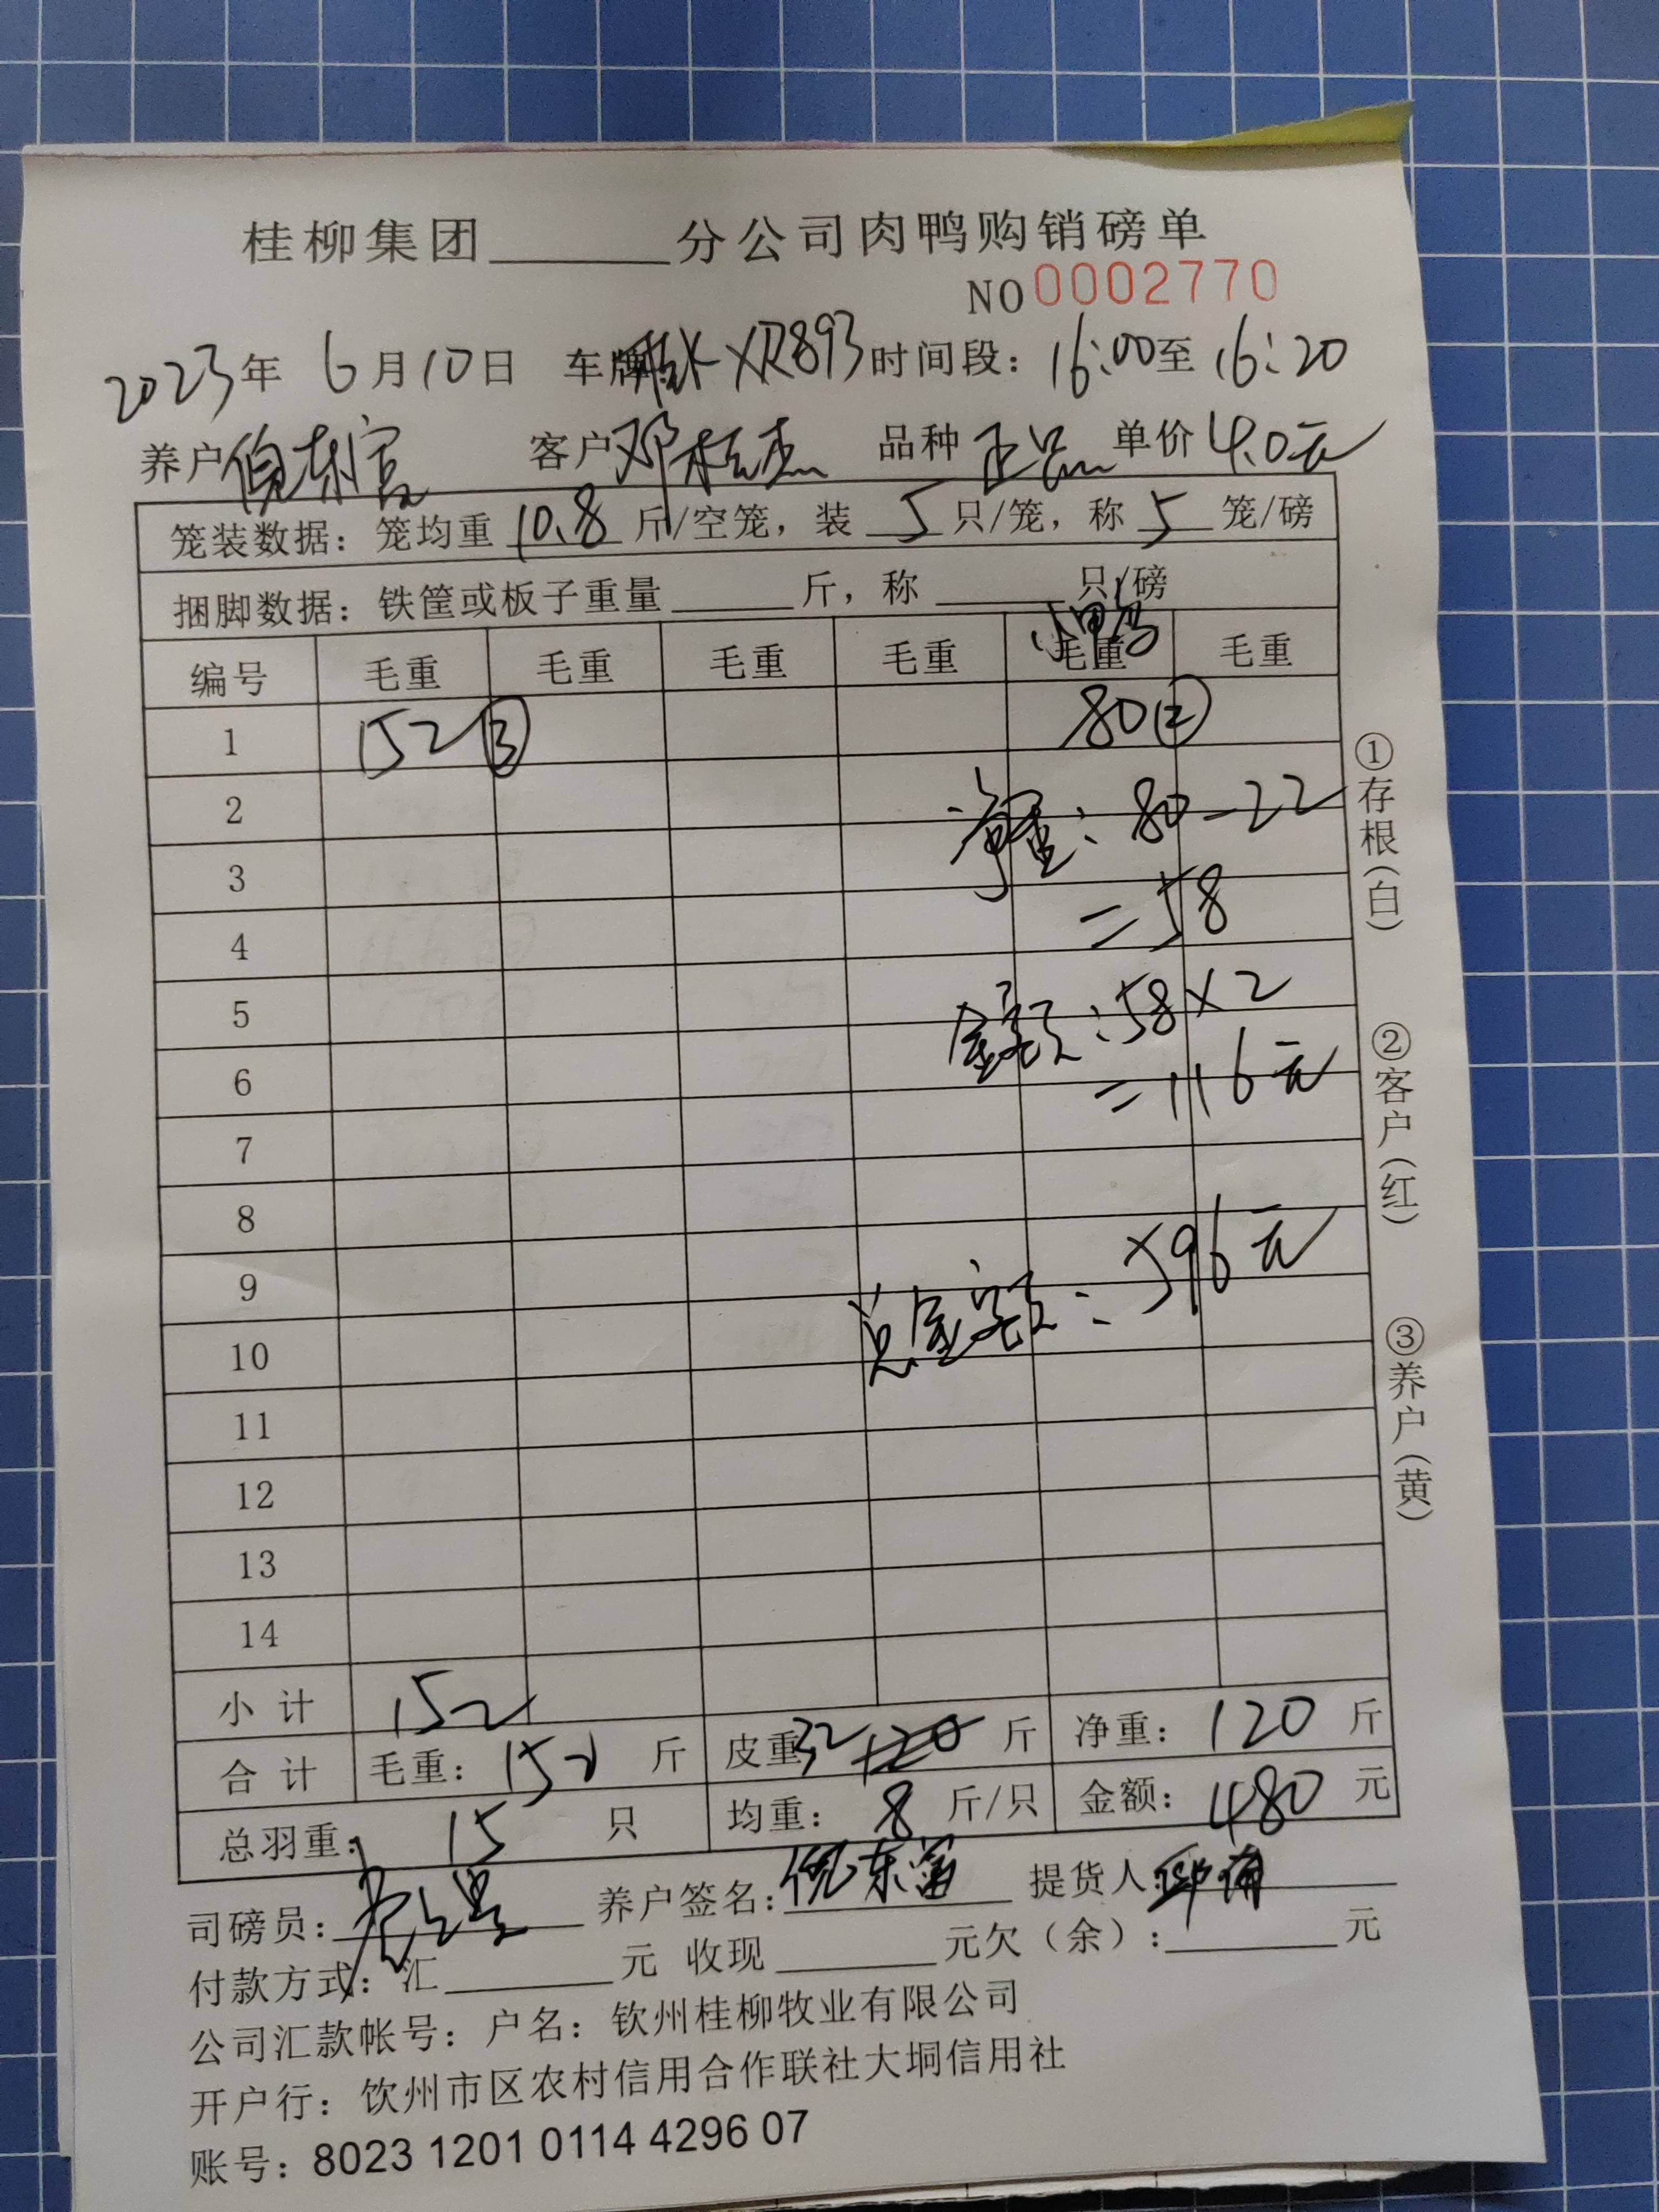 桂柳集团______分公司肉鸭购销磅单
NO 0002770
2023年 6月10日 车牌 XR893 时间段：16:00至 16:20
养户 客户 邓 品种 正品 单价 4.0元
笼装数据：笼均重 10.8 斤/空笼，装 5 只/笼，称 5 笼/磅
捆脚数据：铁筐或板子重量______斤，称______只/磅
小鸭
编号 毛重 毛重 毛重 毛重 毛重 毛重
1 152③ 80②
2 净重：80-22
3
4 =58
5 金额：58×2
6 =116元
7
8
9 总金额：596元
10
11
12
13
14
小计 152
合计 毛重：152 斤 皮重：32 120 斤 净重：120 斤
总羽重： 15 只 均重： 8 斤/只 金额：480 元
司磅员： 养户签名：倪东富 提货人：
付款方式：汇______元 收现______元欠（余）：______元
公司汇款帐号：户名：钦州桂柳牧业有限公司
开户行：饮州市区农村信用合作联社大垌信用社
账号：8023 1201 0114 4296 07
①存根（白）
②客户（红）
③养户（黄）